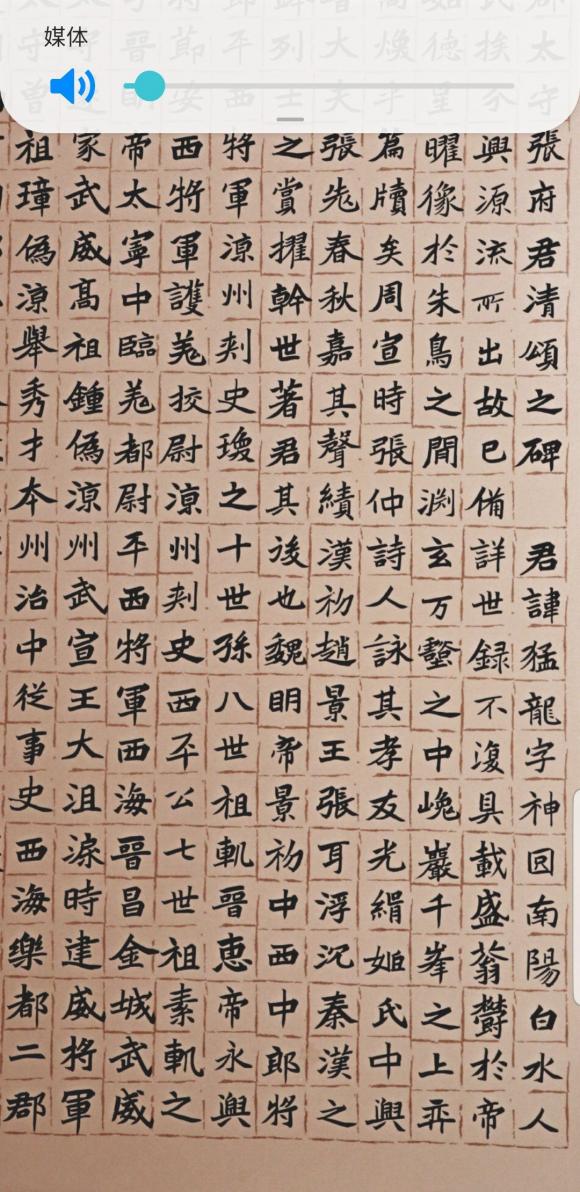 媒体
郡太守張府君清頌之碑 君諱猛龍字神囧南陽白水人
分興源流所出故已俻詳世録不復具載盛蓊欝於帝
德星曜像於朱鳥之間渊玄万壑之中巉巖千峯之上弈
煥乎篇牘矣周宣時張仲詩人詠其孝友光緝姬氏中興
大夫張老春秋嘉其聲績漢初趙景王張耳浮沉秦漢之
列士之賞擢幹世著君其後也魏明帝景初中西中郎將
平西將軍涼州刾史瓊之十世孫八世祖軌晉惠帝永興
節安西將軍護羌校尉涼州刾史西平公七世祖素軌之
晉明帝太寧中臨羌都尉平西將軍西海晉昌金城武威
家武威高祖鍾偽涼州武宣王大沮渠時建威將軍
祖璋偽涼舉秀才本州治中從事史西海樂都二郡